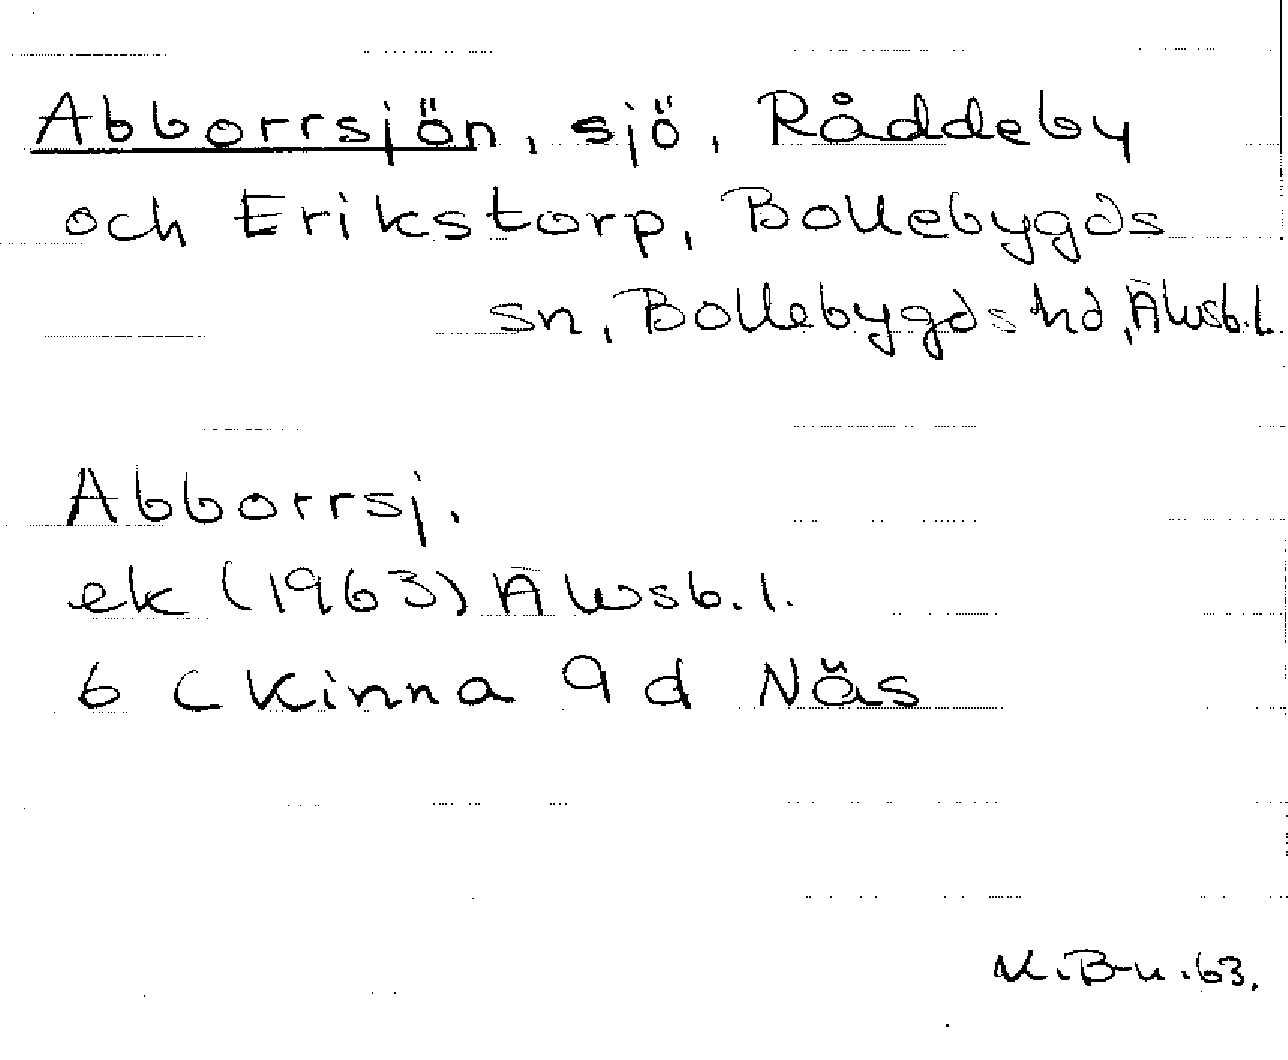 Abborrsjön, sjö, Råddeby
och Erikstorp, Bollebygds
sn, Bollebygds hd, Älvsb.l.
Abborrsj.
ek (1963) Älvsb.l.
6 C Kinna 9 d Näs
M.B-n.63.